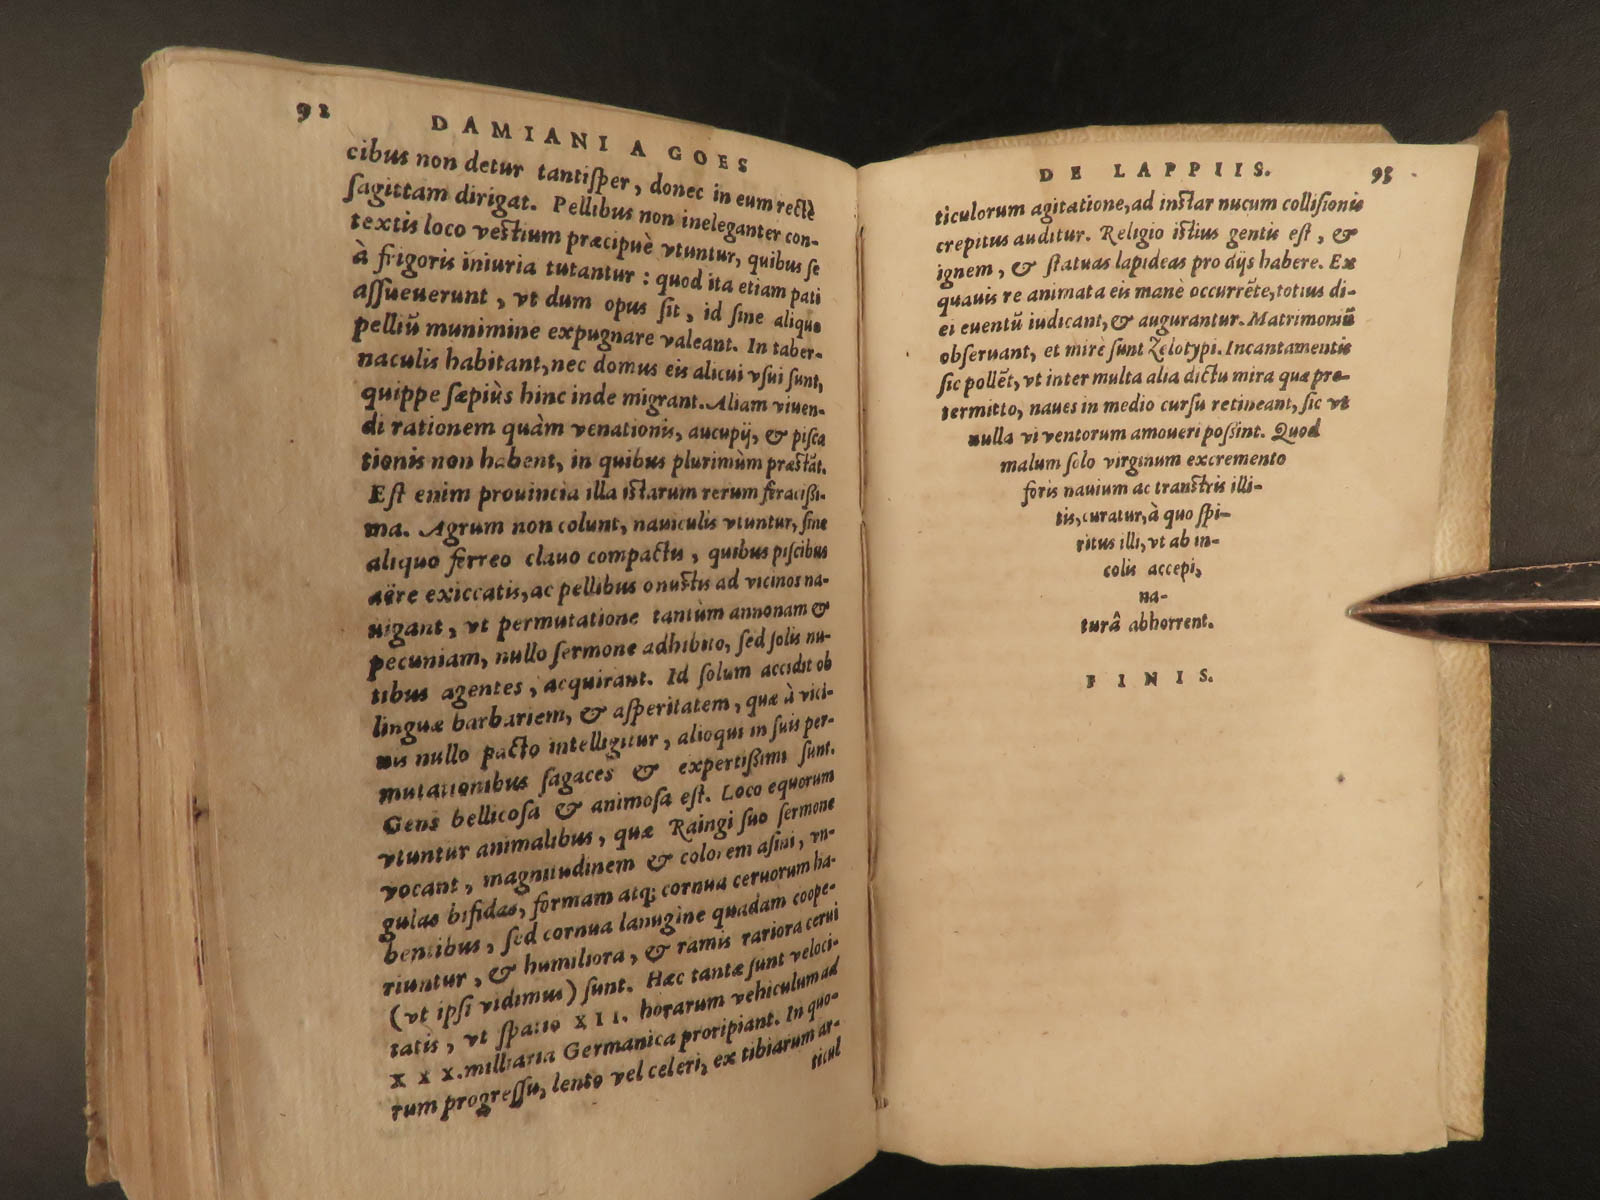 92
DAMIANI A GOES
cibus non detur tantiſper, donec in eum rectè
ſagittam dirigat. Pellibus non ineleganter con-
textis loco veſtium præcipuè vtuntur, quibus ſe
à frigoris iniuria tutantur : quod ita etiam pati
aſſueuerunt, vt dum opus ſit, id ſine aliquo
pelliũ munimine expugnare valeant. In taber-
naculis habitant, nec domus eis alicui vſui ſunt,
quippe ſæpiùs hinc inde migrant. Aliam viuen-
di rationem quàm venationis, aucupij, & piſca
tionis non habent, in quibus plurimùm præſtãt.
Eſt enim prouincia illa iſtarum rerum feraciſsi-
ma. Agrum non colunt, nauiculis vtuntur, ſine
aliquo ferreo clauo compactis, quibus piſcibus
aëre exiccatis, ac pellibus onuſtis ad vicinos na-
uigant, vt permutatione tantùm annonam &
pecuniam, nullo ſermone adhibito, ſed ſolis nu-
tibus agentes, acquirant. Id ſolum accidit ob
linguæ barbariem, & aſperitatem, quæ à vici-
nis nullo pacto intelligitur, alioqui in ſuis per-
mutationibus ſagaces & expertiſsimi ſunt.
Gens bellicoſa & animoſa eſt. Loco equorum
vtuntur animalibus, quæ Raingi ſuo ſermone
vocant, magnitudinem & colorem aſini, vn-
gulas bifidas, formam atq; cornua ceruorum ha-
bentibus, ſed cornua lanugine quadam coope-
riuntur, & humiliora, & ramis rariora cerui
(vt ipſi vidimus) ſunt. Hæc tantæ ſunt veloci-
tatis, vt ſpatio XII. horarum vehiculum ad
XXX. milliaria Germanica proripiant. In quo-
rum progreſſu, lento vel celeri, ex tibiarum ar-
ticul
DE LAPPIIS. 93
ticulorum agitatione, ad inſtar nucum colliſionis
crepitus auditur. Religio iſtius gentis eſt, &
ignem, & ſtatuas lapideas pro dijs habere. Ex
quauis re animata eis manè occurrẽte, totius di-
ei euentũ iudicant, & augurantur. Matrimoniũ
obſeruant, et mirè ſunt Zelotypi. Incantamentis
ſic pollẽt, vt inter multa alia dictu mira quæ præ-
termitto, naues in medio curſu retineant, ſic vt
nulla vi ventorum amoueri poſsint. Quod
malum ſolo virginum excremento
foris nauium ac tranſtris illi-
tis, curatur, à quo ſpi-
ritus illi, vt ab in-
colis accepi,
na-
turâ abhorrent.
FINIS.